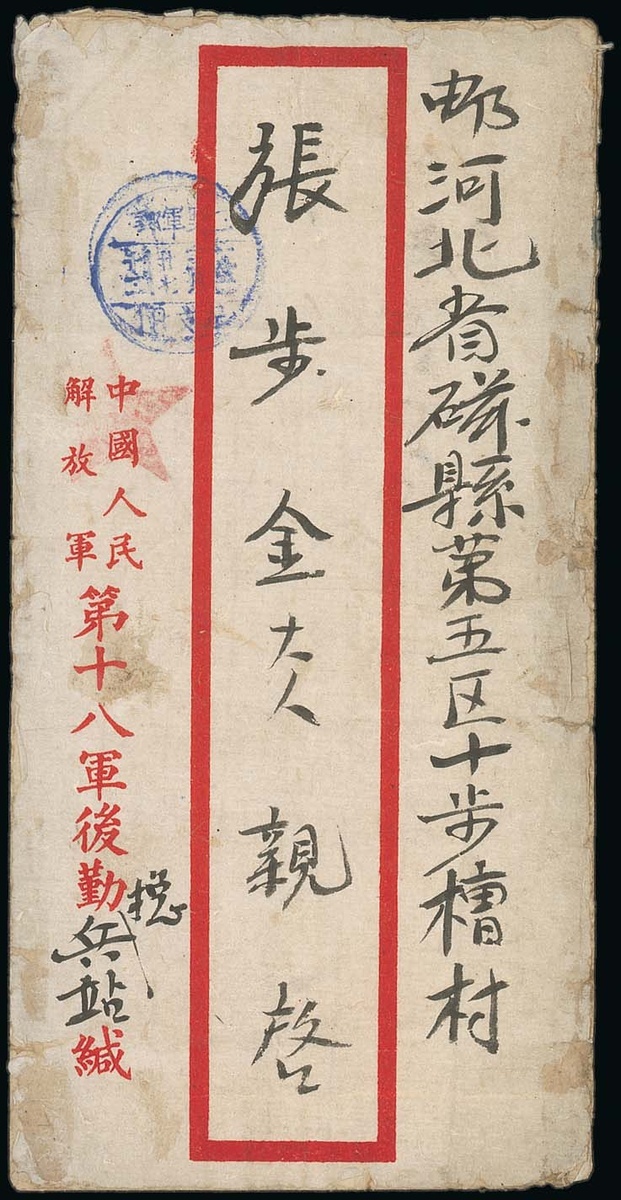 邮河北省磁縣第五区十步槽村
張步金大人親啓
中國人民
解放軍
第十八軍後勤
总兵站
緘